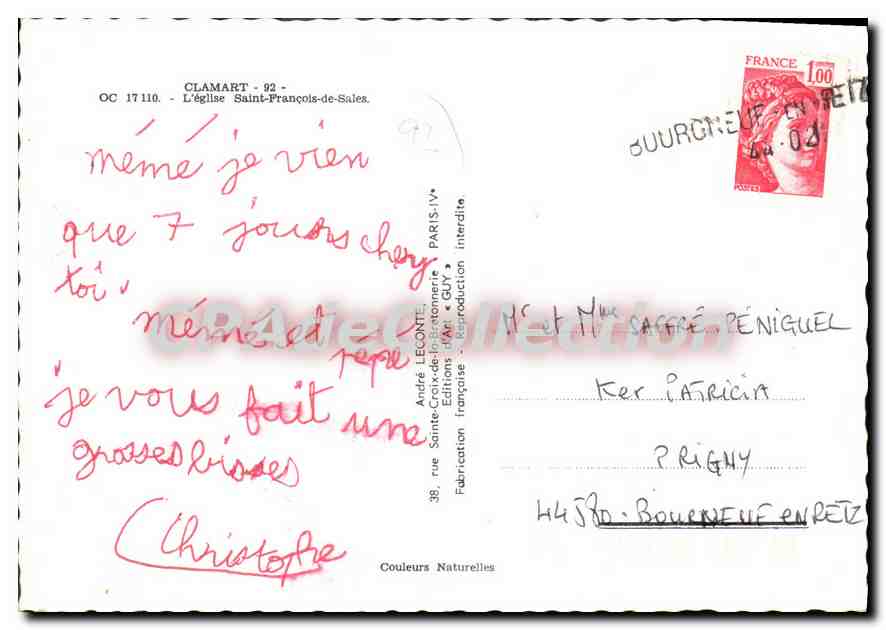 CLAMART - 92 -
OC 17 110. - L'église Saint-François-de-Sales.
92
mémé je vien
que 7 jours chez
toi.
mémé et pépé
je vous fait une
grosses bisses
Christophe
André LECONTE,
38, rue Sainte-Croix-de-la-Bretonnerie PARIS-IVe
Editions d'Art « GUY »
Fabrication française - Reproduction interdite.
FRANCE
1,00
POSTES
BOURGNEUF-EN-RETZ
44-02
Mr et Mme SAFFRÉ-PÉNIGUEL
Ker PATRICIA
PRIGNY
44580-BOURNEUF en RETZ
Couleurs Naturelles
CPAdeCollection